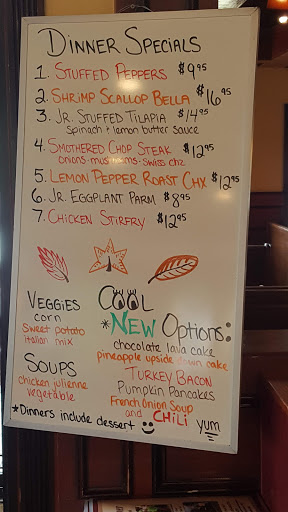 Dinner Specials
1. Stuffed Peppers $9.95
2. Shrimp Scallop Bella $16.95
3. Jr. Stuffed Tilapia $14.95
spinach + lemon butter sauce
4. Smothered Chop Steak $12.95
onions · mushrooms · swiss chz
5. Lemon Pepper Roast Chx $12.95
6. Jr. Eggplant Parm $8.95
7. Chicken Stirfry $12.95
Veggies
corn
sweet potato
italian mix
Soups
chicken julienne
vegetable
Cool
*New Options:
chocolate lava cake
pineapple upside down cake
Turkey Bacon
Pumpkin Pancakes
French Onion Soup
and CHiLi
yum
*Dinners include dessert